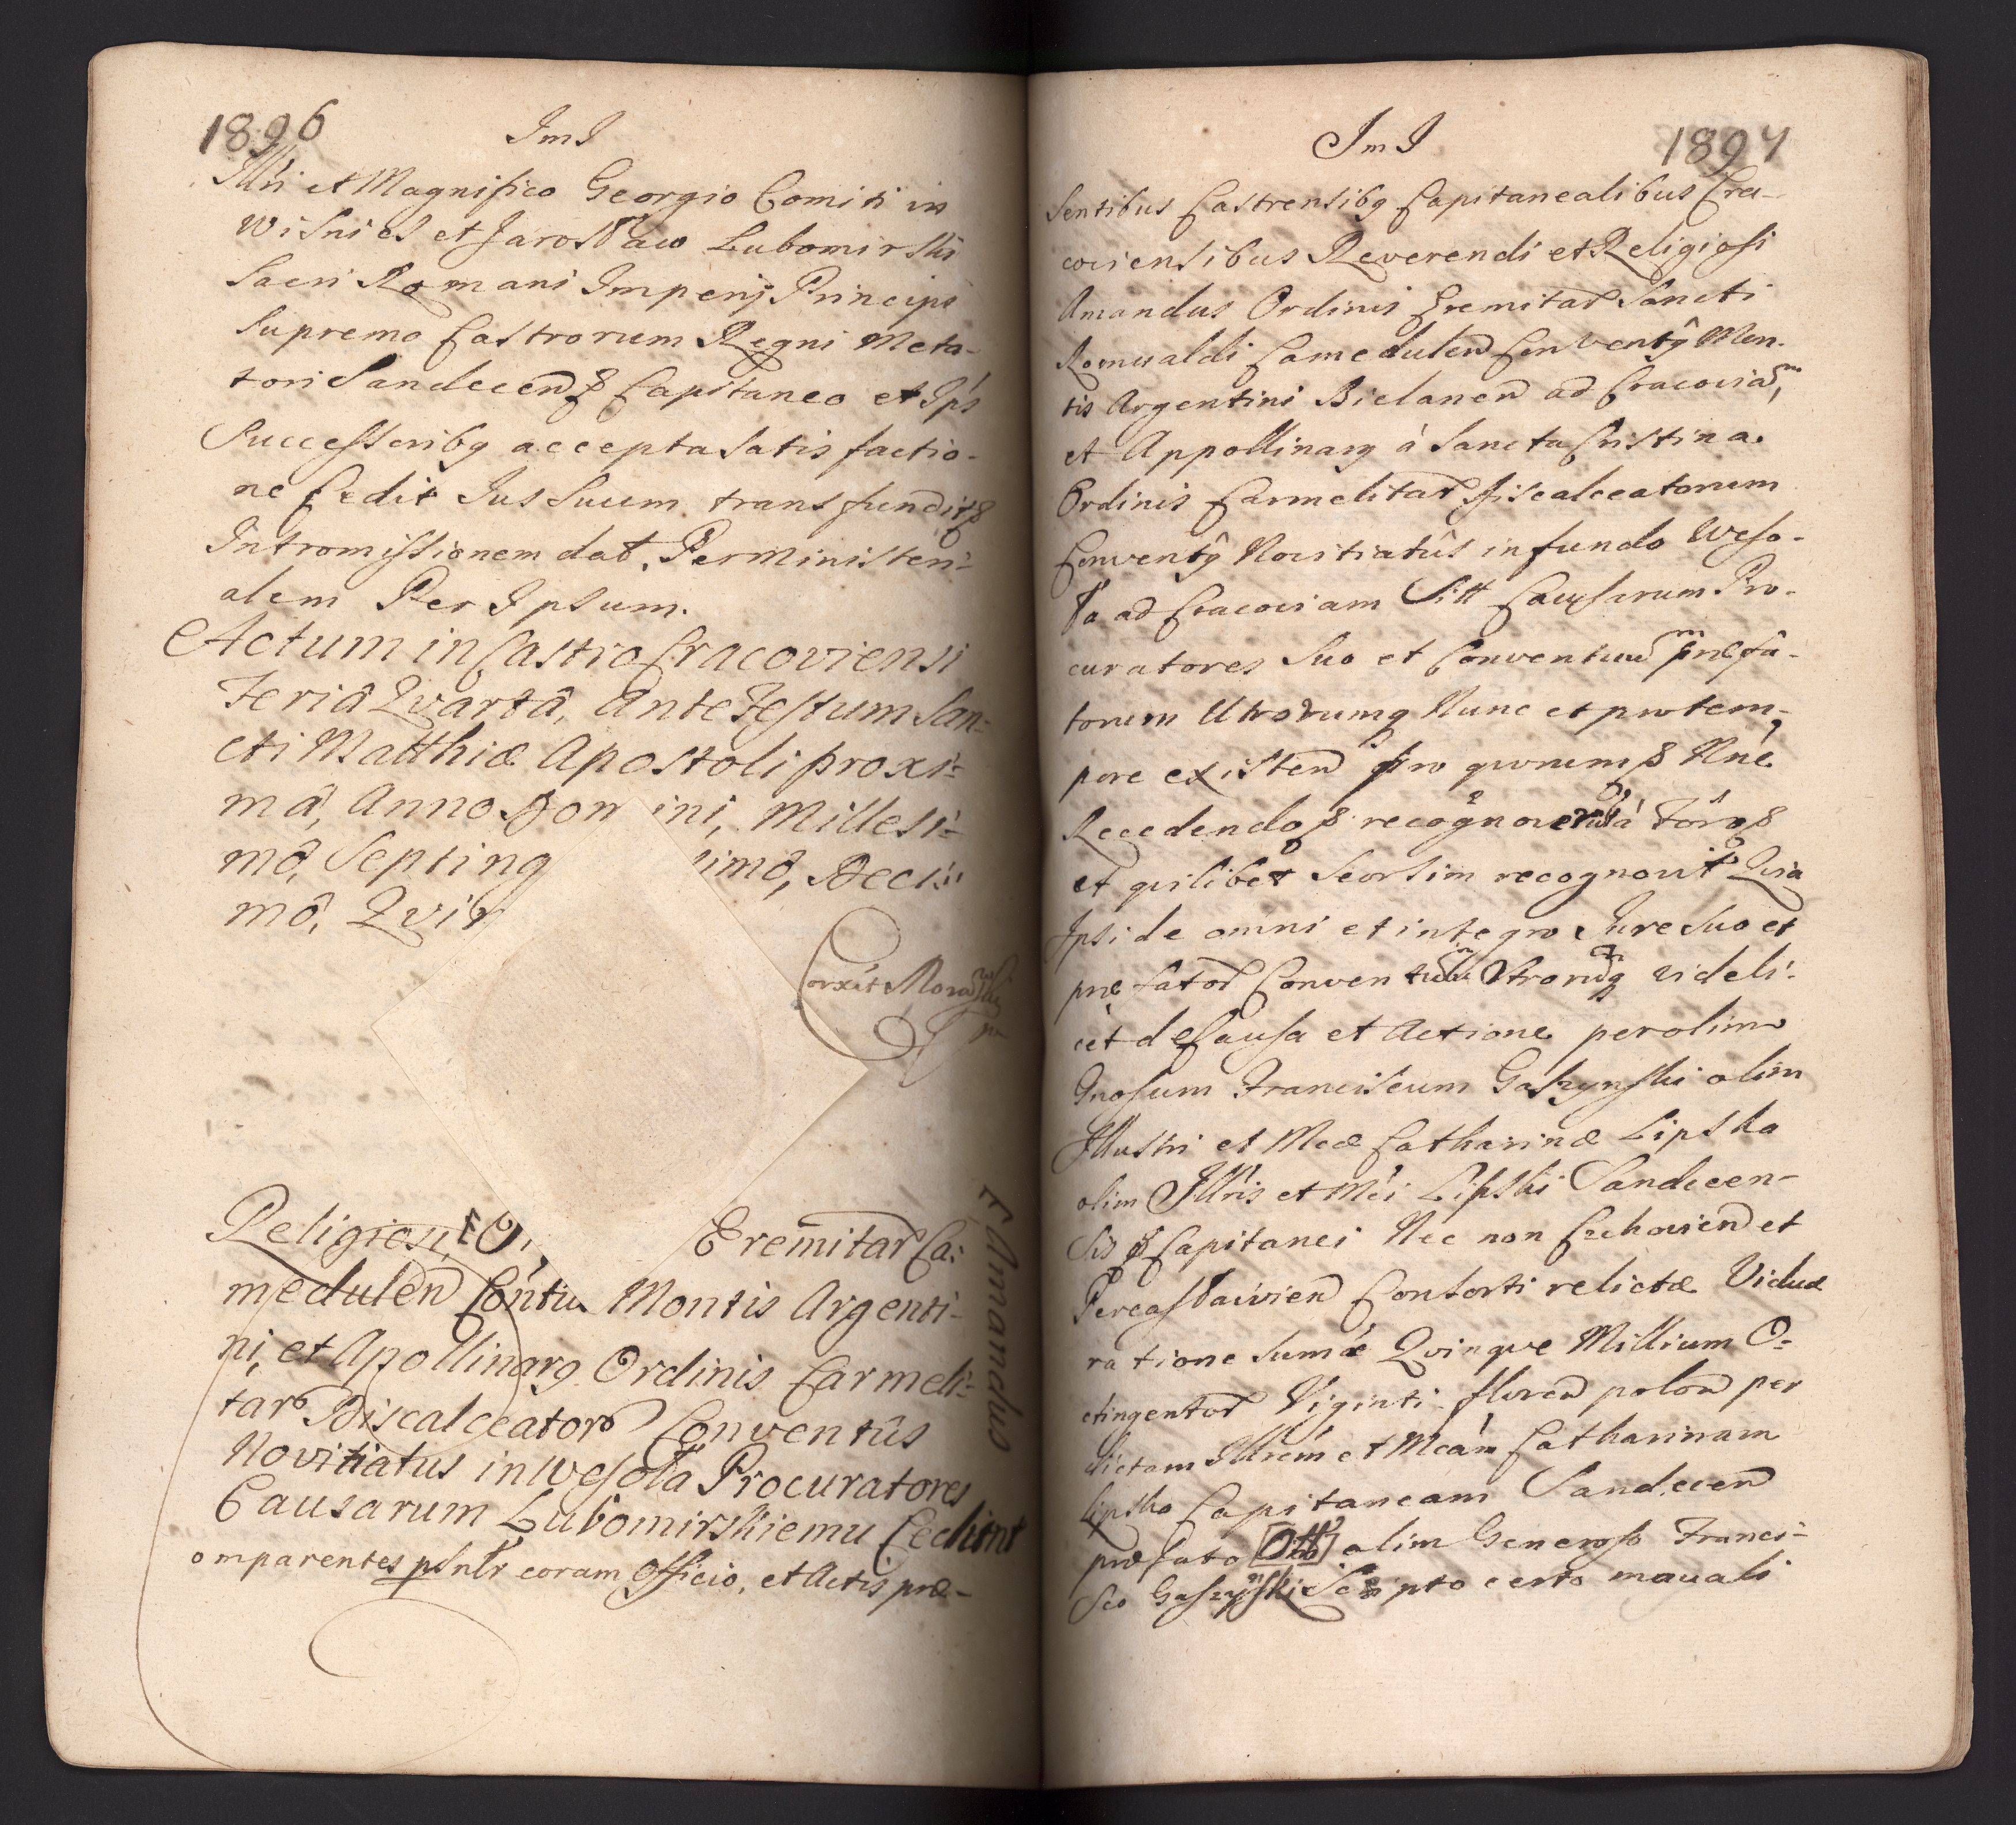 1896
ImI
Illri et Magnifico Georgio Comiti in
Wisnicz et Jarosław Lubomirski
Sacri Romani Imperij Principi
Supremo Castrorum Regni Meta-
tori Sandecen̄ Capitaneo et Ip̄s
Successoribq accepta satis factio-
ne Cedit Jus Suum transfundit
Intromissionem dat. Per Ministeri-
alem Per Ipsum.
Actum in Castro Cracoviensi
Feriâ Qvartâ, Ante Festum San-
cti Matthiæ Apostoli proxi-
mâ, Anno Domini, Millesi-
mô, Septing imô, Deci-
mô, Qvi
Religiosi, O, Eremitar Ca-
medulen Contû Montis Argenti-
ni, et Apollinarq Ordinis Carmeli-
tar Discalceator Conventûs
Novitiatus in Wesoła Procuratores
Causarum Lubomirskiemu Cedunt
omparentes psntr coram Officio, et Actis præ-
F: Amandus
ImI
1897
sentibus Castrensibq Capitanealibus Cra-
coviensibus Reverendi et Religiosi
Amandus Ordinis Eremitar Sancti
Romualdi Camedulen Conventq Mon-
tis Argentini Bielanen ad Cracoviam,
et Appollinarq à Sancta Cristina
Ordinis Carmelitar Discalceatorum
Conventq Novitiatûs in fundo Weso-
ła ad Cracoviam Sitt Causarum Pro-
curatores Suo et Conventuum præfa-
torum Utrorumq Nunc et pro tem-
pore existen pro quorum Nne
Recedendo recognover
et qvilibet Seorsim recognovit Qvia
Ipsi de omni et integro Jure Suo et
præfator Conventuum Utrorumq videli-
cet de Causa et Actione per olim
Gnosum Franciscum Gaszynski olim
Illustri et Mcæ Catharinæ Lipska
olim Illris et Mci Lipski Sandecen-
sis Capitanei Nec non Czchovien et
Pereasławien Consorti relictæ Viduæ
ratione Sumæ Qvinqve Millium O-
ctingentor Viginti floren polon per
dictam Illrem et Mcam Catharinam
Lipska Capitaneam Sandecen
præfato olim Generoso Franci-
sco Gaszynski Scripto certo manuali